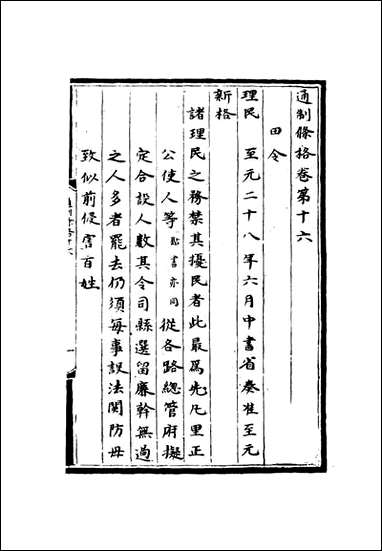 通制條格卷第十六
田令
理民　至元二十八年六月中書省奏准至元
新格
諸理民之務禁其擾民者此最爲先凡里正
公使人等貼書亦同從各路總管府擬
定合設人數其令司縣選留廉幹無過
之人多者罷去仍須每事設法關防毋
致似前侵害百姓
通制條格十六
一